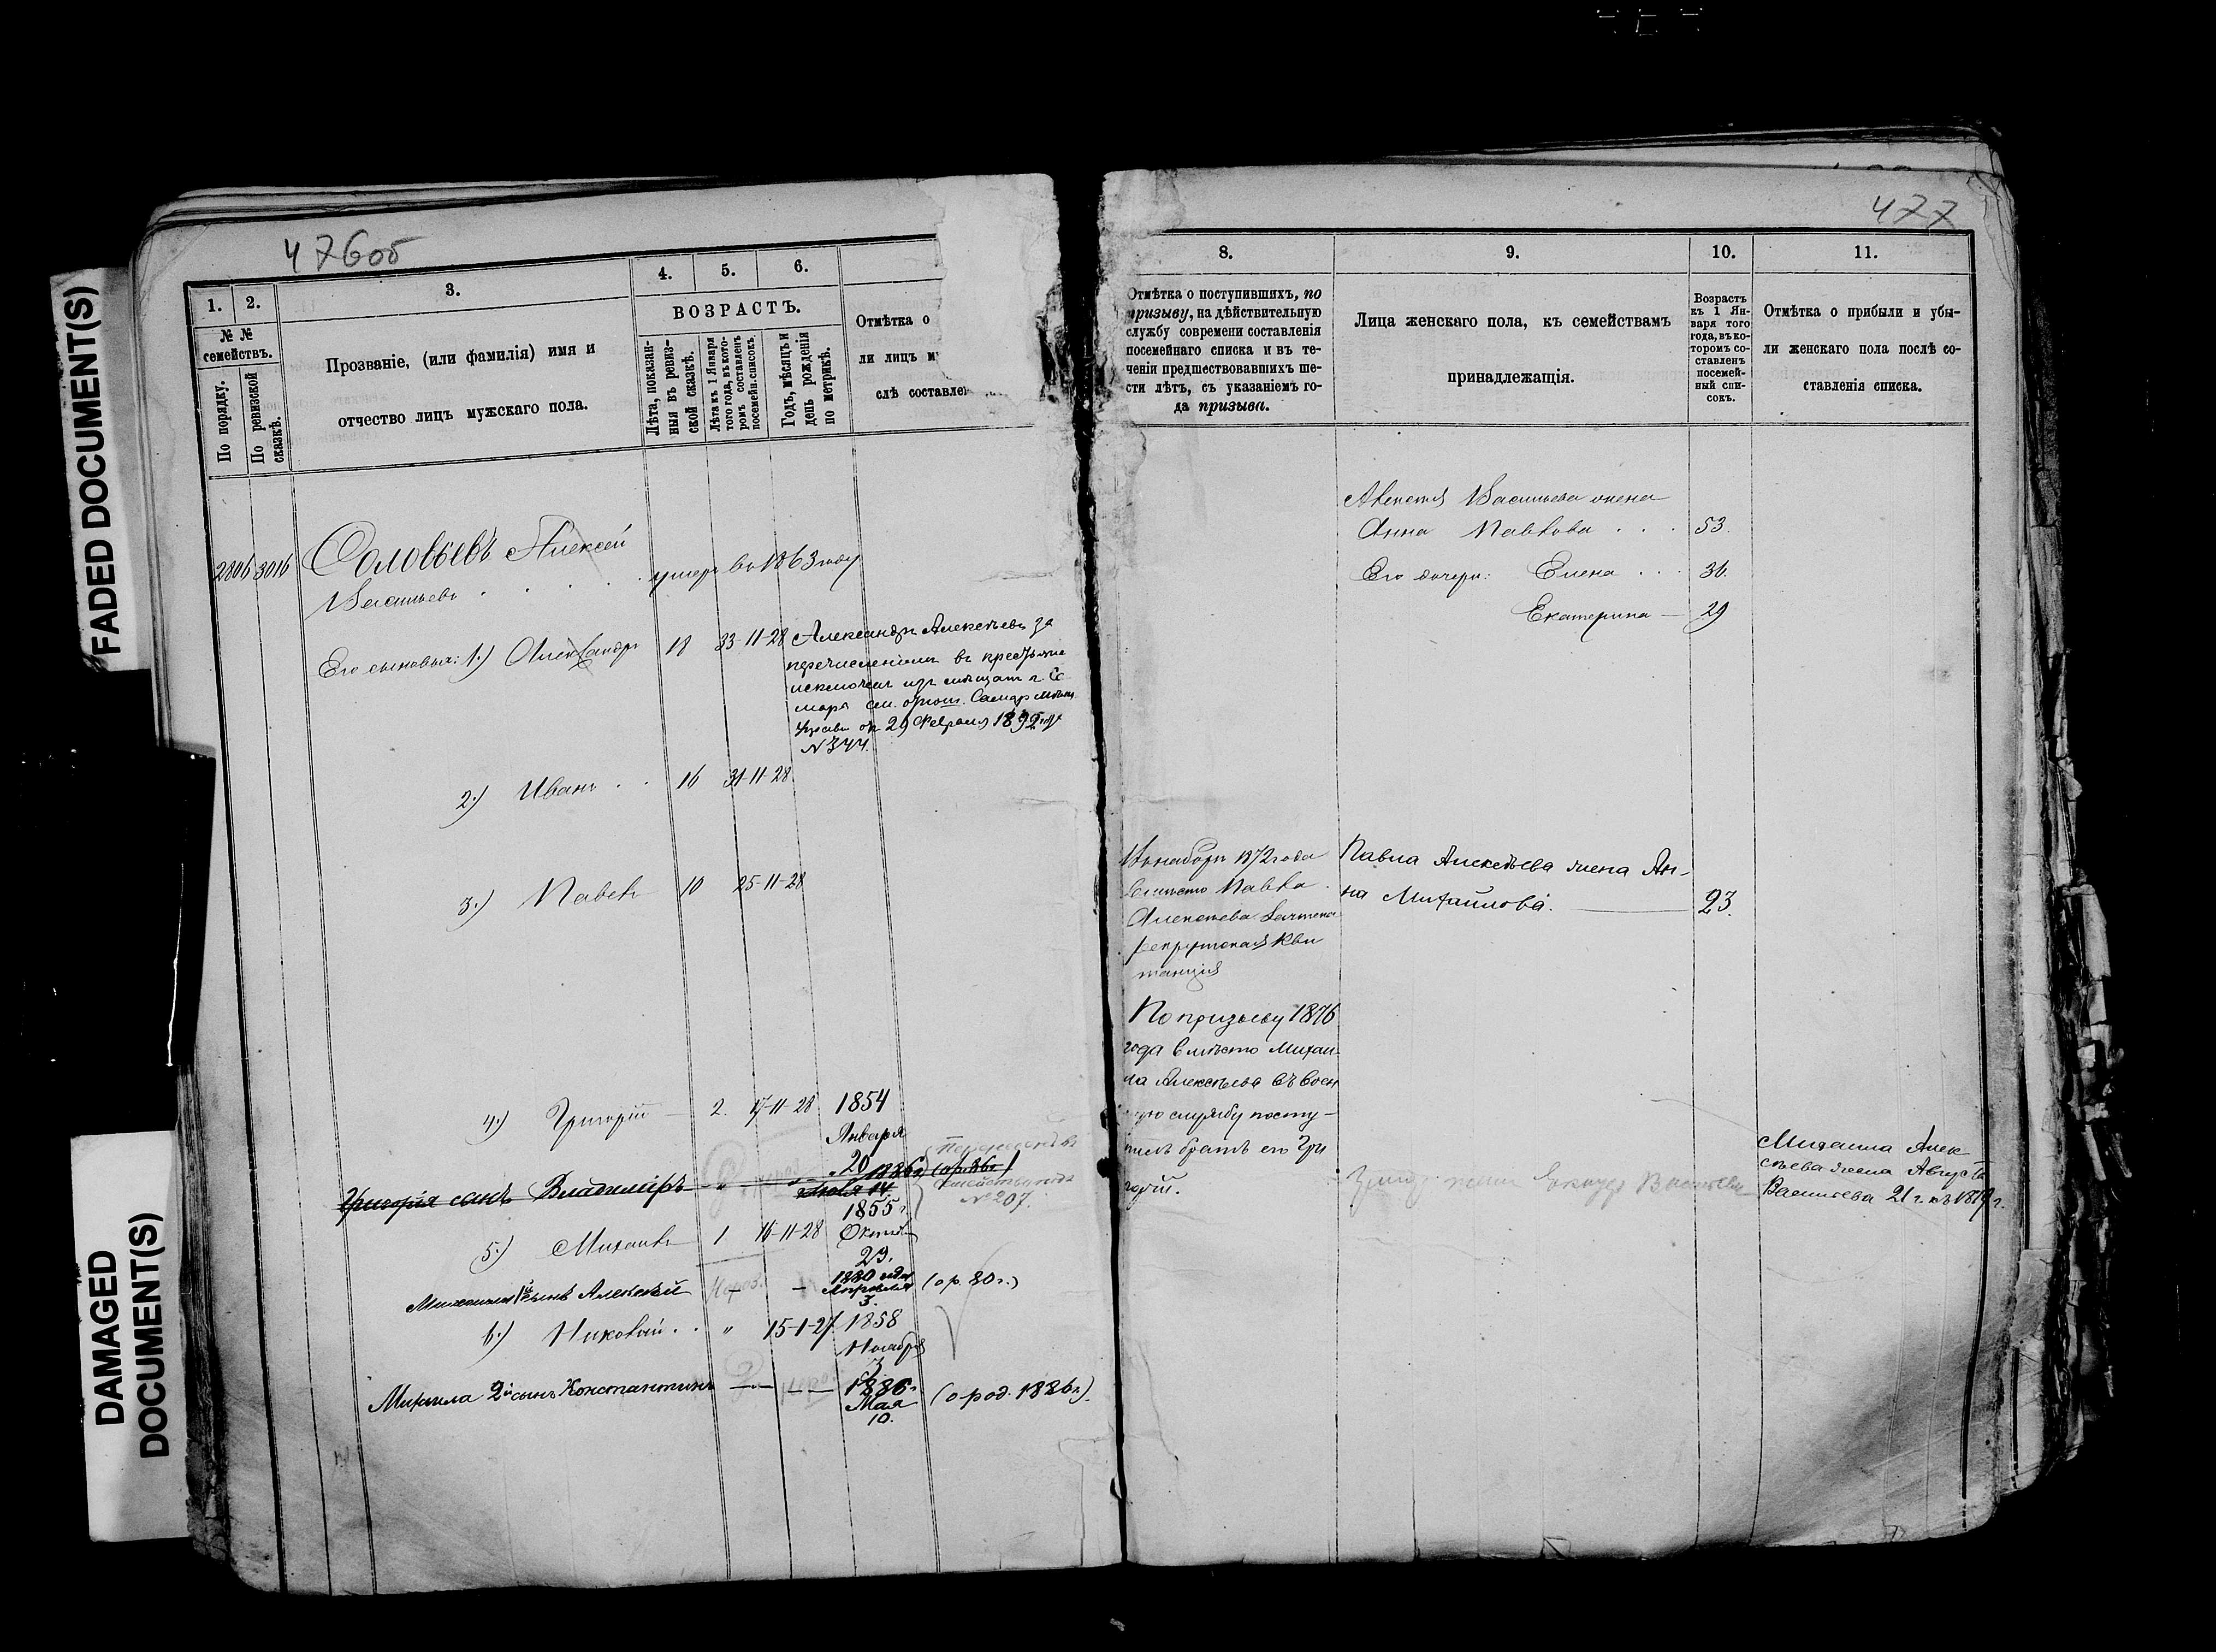 FADED DOCUMENT(S)
DAMAGED
DOCUMENT(S)
476об
1.
2.
3.
4.
5.
6.
№ №
семействъ.
По порядку.
По ревизской
сказкѣ.
Прозваніе, (или фамилія) имя и
отчество лицъ мужскаго пола.
ВОЗРАСТЪ.
Лѣта, показан-
ныя въ ревиз-
ской сказкѣ.
Лѣта къ 1 Января
того года, въ кото-
ромъ составленъ
посемейн. списокъ.
Годъ, мѣсяцъ и
день рожденія
по метрикѣ.
Отмѣтка о
ли лицъ м
слѣ составле
2806 3016 Соловьевъ Алексей
Васильевъ . . . . умеръ въ 1863 году
Его сыновья: 1.) Александръ 18 33-11-28 Александръ Алексѣевъ за
перечисленіемъ въ крестьяне
исключенъ изъ мѣщанъ г. Са
мары см. отнош. Самар. мѣщ.
Управы отъ 29 Февраля 1892 года
№ 344.
2.) Иванъ . . 16 31-11-28
3.) Павелъ 10 25-11-28
4.) Григорій — 2. 17-11-28 1854
Января
20
Григорія сынъ Владиміръ " " 1886г. (о р. 86г.)
Іюля 14.
№ 207.
1855 г.
5.) Михаилъ 1 16-11-28 Октяб
29.
Михаила 1й сынъ Алексѣй — — 1880 года (о р. 80г.)
Апрѣля
3.
6.) Николай . . " 15-1-27 1858
Ноября
3
Михаила 2й сынъ Константинъ — — 1886 г. (о род. 1886г.).
Мая
10.
477
8.
9.
10.
11.
Отмѣтка о поступившихъ, по
призыву, на дѣйствительную
службу современи составленія
посемейнаго списка и въ те-
ченіи предшествовавшихъ ше-
сти лѣтъ, съ указаніемъ го-
да призыва.
Лица женскаго пола, къ семействамъ
принадлежащія.
Возрастъ
къ 1 Ян-
варя того
года, въ ко-
торомъ со-
ставленъ
посемей-
ный спи-
сокъ.
Отмѣтка о прибыли и убы-
ли женскаго пола послѣ со-
ставленія списка.
Алексѣя Васильева жена
Анна Павлова . . . 53.
Его дочери: Елена . . . 36.
Екатерина — 29
Въ наборъ 1872 года
вмѣсто Павла
Алексѣева зачтена
рекрутская кви
танція
Павла Алексѣева жена Ан-
на Михайлова. — 23.
По призыву 1876
года вмѣсто Михаи-
ла Алексѣева въ воен
ную службу посту-
пилъ братъ его Гри
горій.
Михаила Алек-
сѣева жена Августа
Васильева 21 г. къ 1879 г.